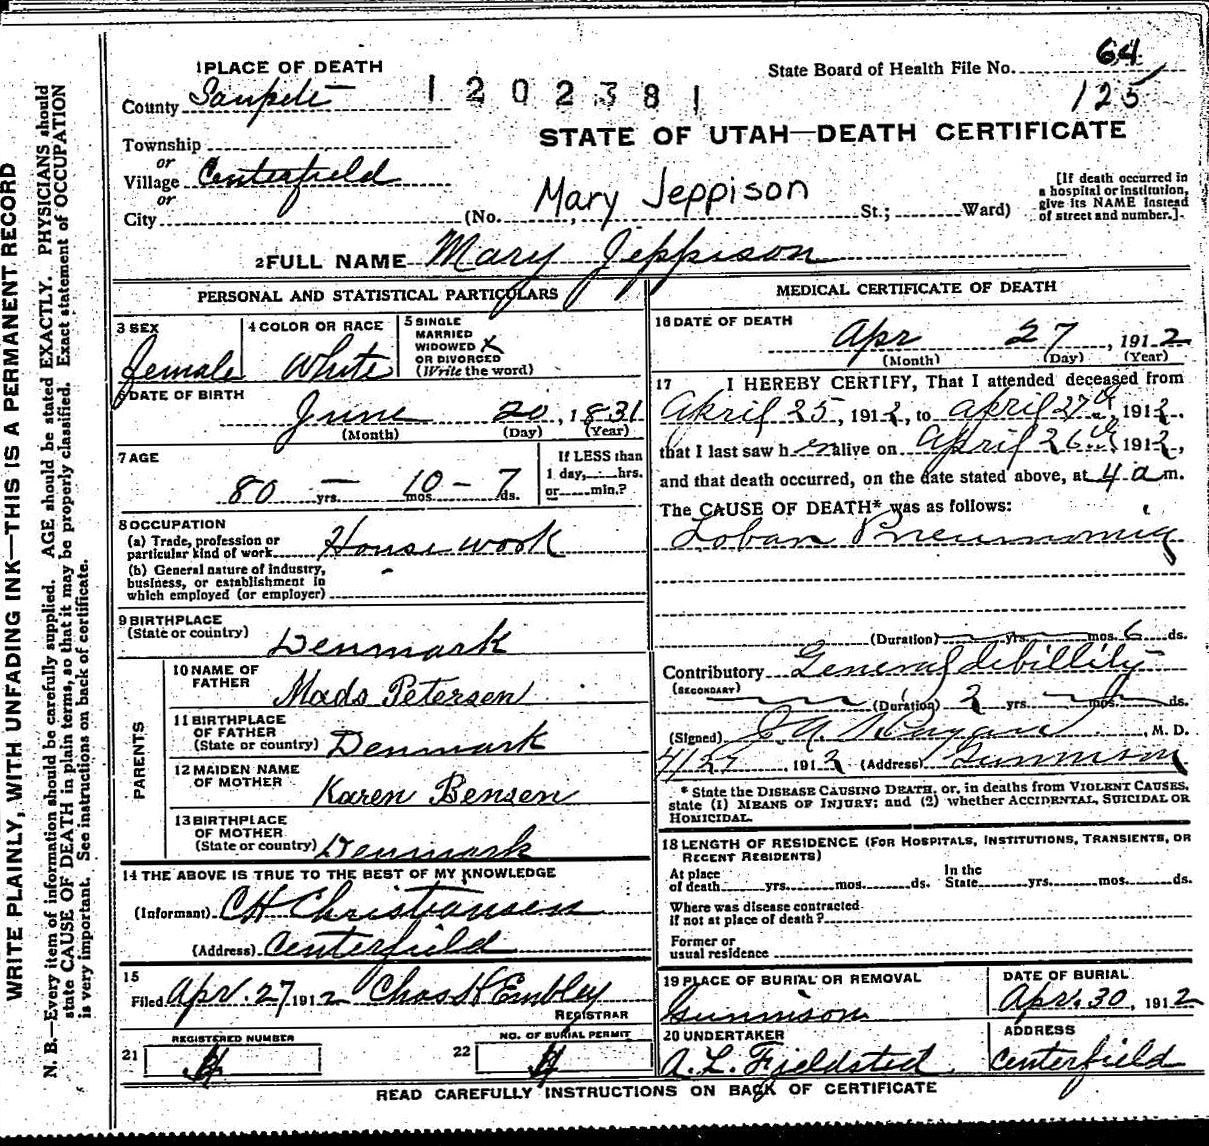 WRITE PLAINLY, WITH UNFADING INK—THIS IS A PERMANENT RECORD
N. B.—Every item of information should be carefully supplied. AGE should be stated EXACTLY. PHYSICIANS should
state CAUSE OF DEATH in plain terms, so that it may be properly classified. Exact statement of OCCUPATION
is very important. See instructions on back of certificate.
1 PLACE OF DEATH
County Sanpete
1202381
State Board of Health File No. 64
125
STATE OF UTAH—DEATH CERTIFICATE
Township
or
Village Centerfield
or
City
(No. Mary Jeppison St.; Ward)
[If death occurred in
a hospital or institution,
give its NAME instead
of street and number.]
2 FULL NAME Mary Jeppison
PERSONAL AND STATISTICAL PARTICULARS
3 SEX
Female
4 COLOR OR RACE
White
5 SINGLE
MARRIED
WIDOWED X
OR DIVORCED
(Write the word)
6 DATE OF BIRTH
June 20, 1831
(Month) (Day) (Year)
7 AGE
80 yrs. 10 mos. 7 ds.
If LESS than
1 day, hrs.
or min.?
8 OCCUPATION
(a) Trade, profession or
particular kind of work Housework
(b) General nature of industry,
business, or establishment in
which employed (or employer)
9 BIRTHPLACE
(State or country) Denmark
PARENTS
10 NAME OF
FATHER Mads Petersen
11 BIRTHPLACE
OF FATHER
(State or country) Denmark
12 MAIDEN NAME
OF MOTHER Karen Bensen
13 BIRTHPLACE
OF MOTHER
(State or country) Denmark
14 THE ABOVE IS TRUE TO THE BEST OF MY KNOWLEDGE
(Informant) CH Christiansen
(Address) Centerfield
15
Filed Apr. 27 1912 Chas K Embley
REGISTRAR
21 REGISTERED NUMBER
22 NO. OF BURIAL PERMIT
MEDICAL CERTIFICATE OF DEATH
16 DATE OF DEATH
Apr 27, 1912
(Month) (Day) (Year)
17 I HEREBY CERTIFY, That I attended deceased from
April 25, 1912, to April 27th, 1912,
that I last saw her alive on April 26th, 1912,
and that death occurred, on the date stated above, at 4 a m.
The CAUSE OF DEATH* was as follows:
Lobar Pneumonia
(Duration) yrs. mos. 6 ds.
Contributory General debillity
(SECONDARY)
(Duration) 2 yrs. mos. ds.
(Signed) , M. D.
4/27, 1912 (Address) Gunnison
* State the DISEASE CAUSING DEATH, or, in deaths from VIOLENT CAUSES,
state (1) MEANS OF INJURY; and (2) whether ACCIDENTAL, SUICIDAL OR
HOMICIDAL.
18 LENGTH OF RESIDENCE (FOR HOSPITALS, INSTITUTIONS, TRANSIENTS, OR
RECENT RESIDENTS)
At place
of death yrs. mos. ds.
In the
State yrs. mos. ds.
Where was disease contracted
if not at place of death?
Former or
usual residence
19 PLACE OF BURIAL OR REMOVAL
Gunnison
DATE OF BURIAL
Apr. 30, 1912
20 UNDERTAKER
A. L. Fjeldsted
ADDRESS
Centerfield
READ CAREFULLY INSTRUCTIONS ON BACK OF CERTIFICATE